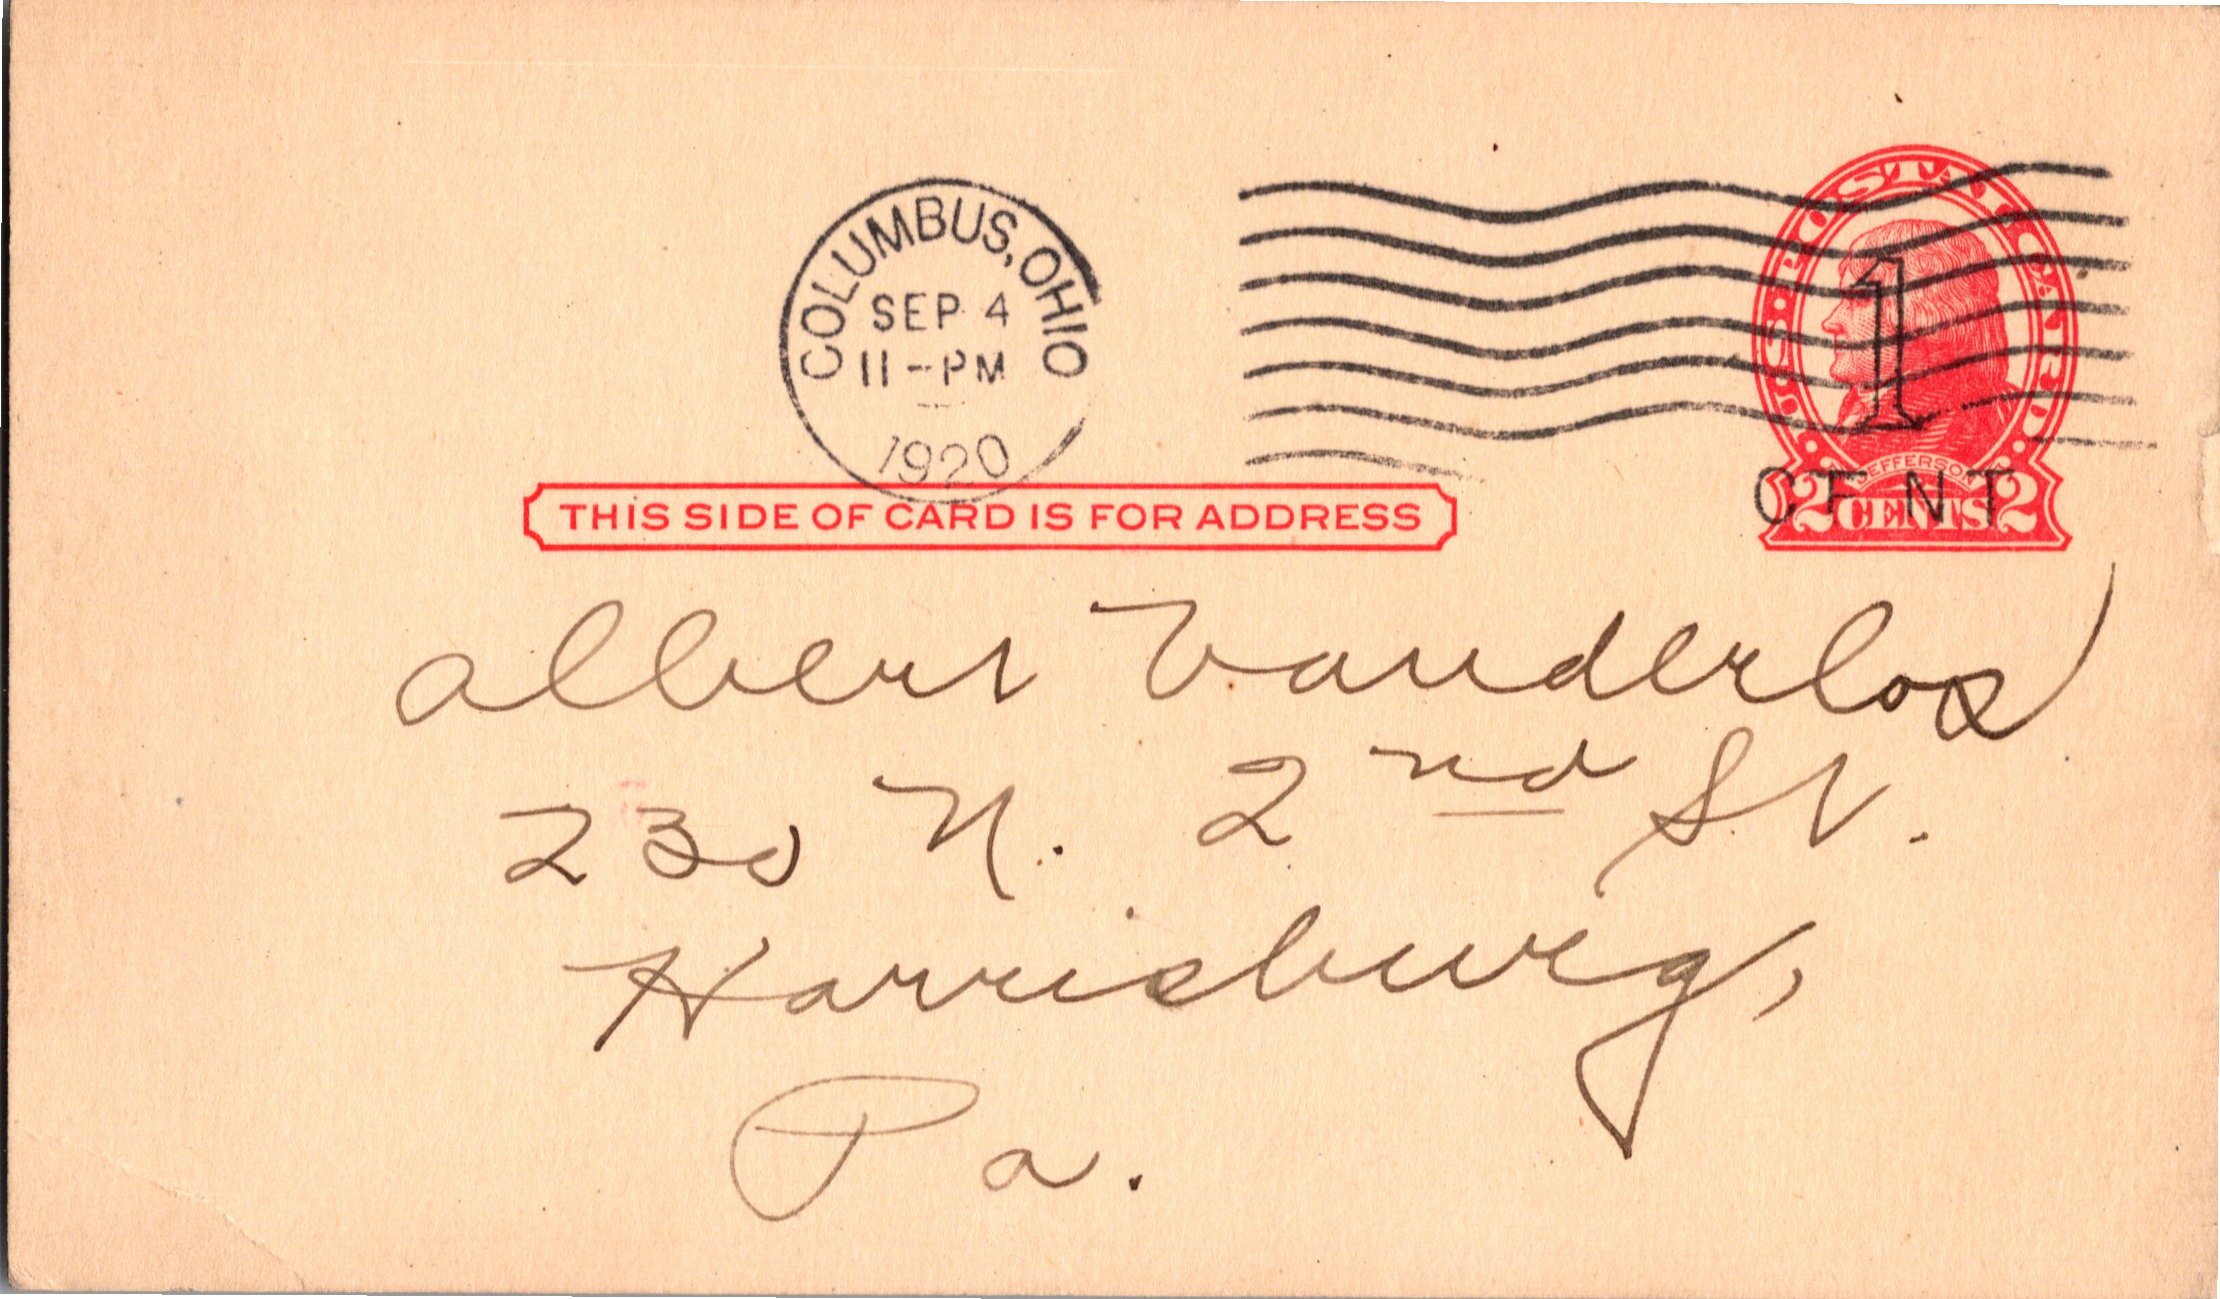 COLUMBUS, OHIO
SEP 4
11-PM
1920
U.S. POSTAL CARD
1
CENT
JEFFERSON
2 CENTS 2
THIS SIDE OF CARD IS FOR ADDRESS
Albert
230 N. 2nd St.
Harrisburg,
Pa.